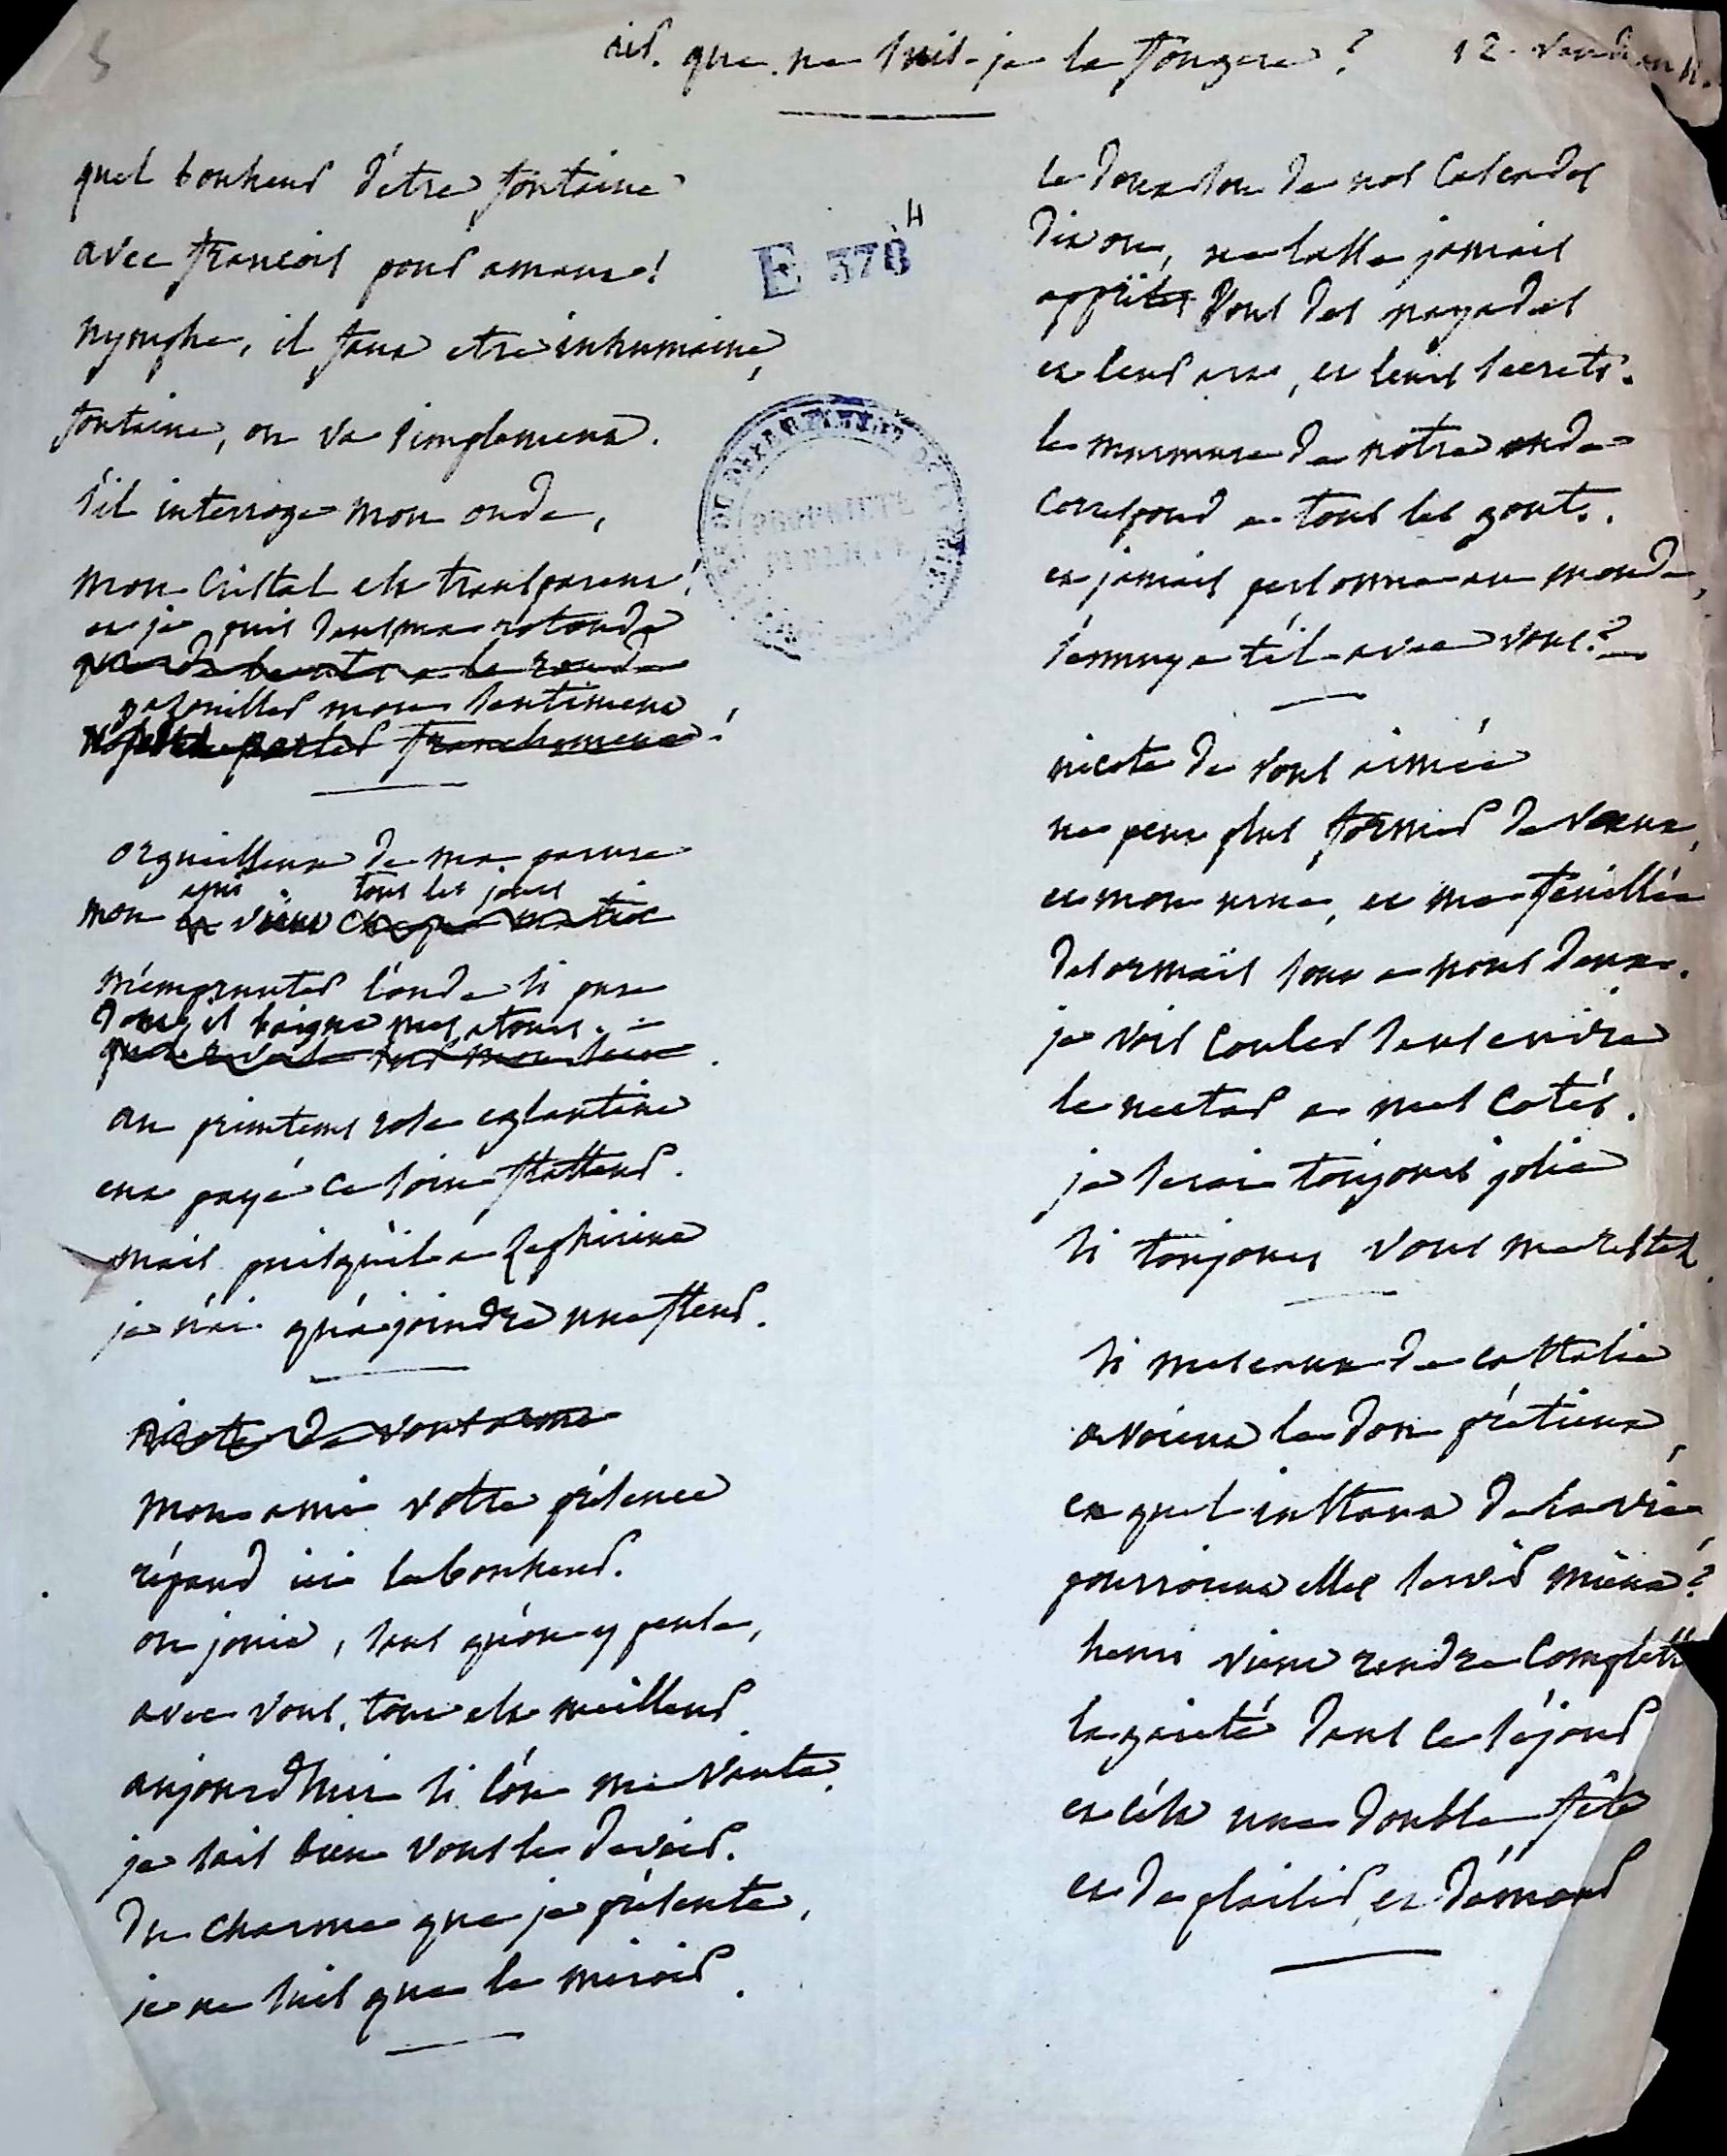 5
air. que ne suis-je la fougere? 12. Vendem.
quel bonheur d'etre fontaine
avec francois pour amant!
nymphe, il faut etre inhumaine,
fontaine, on va simplement.
s'il interroge mon onde,
mon cristal est transparent!
et je puis dans ma rotonde
que de beauté a la ronde
gazouiller mon sentiment!
parler franchement!
orgueilleux de ma parure
mon ami vient tous les jours
chaque matin
m'emprunter l'onde si pure
dont il baigne mes atours.
sur mon sein.
au printems rose eglantine
eut payé ce soin flatteur.
mais puisqu'il a Zephirine
je n'ai qu'a joindre une fleur.
nicette de vous aimé
mon ami votre présence
répand ici le bonheur.
on jouit, sans qu'on y pense,
avec vous, tout est meilleur.
aujourd'hui si l'on me vante,
je sais bien vous le devoir.
du charme que je présente,
je ne suis que le miroir.
E 378 H
PROPRIÉTÉ
le doux son de nos Cascades
dit on, ne lasse jamais
apprites vous des nayades
et leur art, et leurs secrets.
le murmure de notre onde
correspond a tous les gouts.
et jamais personne au monde,
s'ennuya t'il avec vous?
nicette de vous aimée
ne peut plus former de vœux,
et mon urne, et ma feuillée
désormais sont a nous deux.
je vois couler sans envie
le nectar a mes cotés.
je serai toujours jolie
si toujours vous me restez.
si mes eaux de castalie
avoient le don prétieux,
en quel instant de la vie
pourroient elles servir mieux?
henri vient rendre complette
la gaieté dans ce séjour
et c'est une double fête
et de plaisir, et d'amour